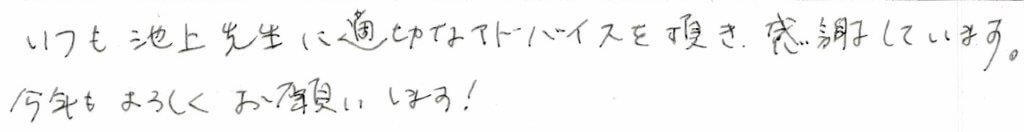 いつも池上先生に適切なアドバイスを頂き、感謝しています。
今年もよろしくお願いします!